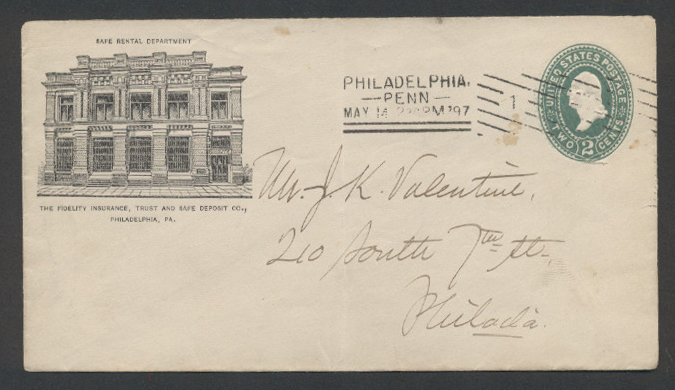 SAFE RENTAL DEPARTMENT
THE FIDELITY INSURANCE, TRUST AND SAFE DEPOSIT CO.,
PHILADELPHIA, PA.
PHILADELPHIA,
PENN
MAY 14 PM '97
1
UNITED STATES POSTAGE
TWO 2 CENTS
Mr. J. K. Valentine,
210 South 7th St.
Philada.